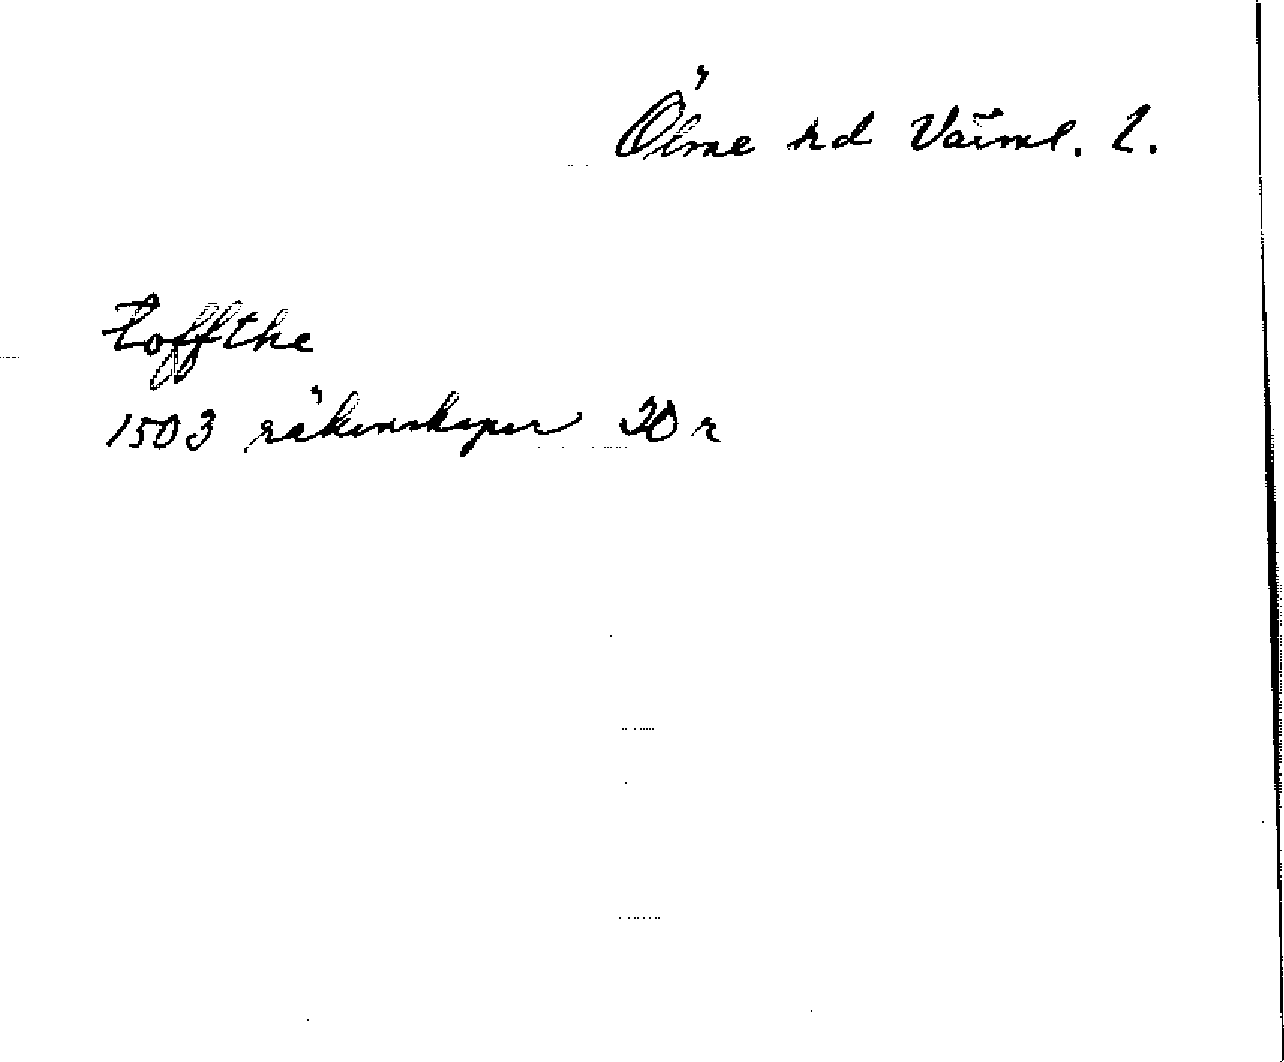 Ölme hd Värml. l.
Toffthe
1503 räkenskaper 20 r